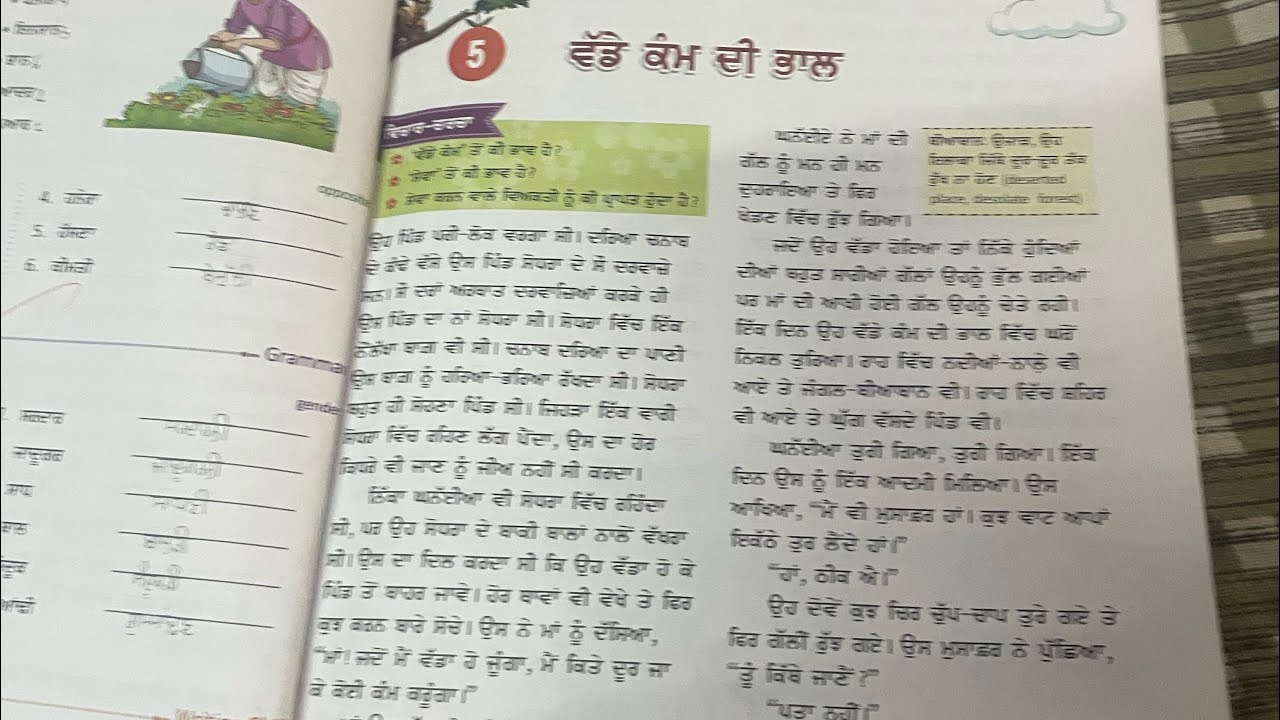 4. ਹਨੇਰਾ
5. ਹੱਸਣਾ
6. ਕੀਮਤੀ
Gramma
gende
ਜਾਦੂਗਰ
5
ਵੱਡੇ ਕੰਮ ਦੀ ਭਾਲ
ਵਿਚਾਰ-ਚਰਚਾ
'ਵੱਡੇ ਕੰਮਾਂ' ਤੋਂ ਕੀ ਭਾਵ ਹੈ?
'ਸੇਵਾ' ਤੋਂ ਕੀ ਭਾਵ ਹੈ?
ਸੇਵਾ ਕਰਨ ਵਾਲੇ ਵਿਅਕਤੀ ਨੂੰ ਕੀ ਪ੍ਰਾਪਤ ਹੁੰਦਾ ਹੈ?
ਉਹ ਪਿੰਡ ਪਰੀ-ਲੋਕ ਵਰਗਾ ਸੀ। ਦਰਿਆ ਚਨਾਬ
ਦੇ ਕੰਢੇ ਵੱਸੇ ਉਸ ਪਿੰਡ ਸੋਧਰਾ ਦੇ ਸੌ ਦਰਵਾਜ਼ੇ
ਸਨ। ਸੌ ਦਰਾਂ ਅਰਥਾਤ ਦਰਵਾਜ਼ਿਆਂ ਕਰਕੇ ਹੀ
ਉਸ ਪਿੰਡ ਦਾ ਨਾਂ ਸੋਧਰਾ ਸੀ। ਸੋਧਰਾ ਵਿੱਚ ਇੱਕ
ਨੌਲੱਖਾ ਬਾਗ਼ ਵੀ ਸੀ। ਚਨਾਬ ਦਰਿਆ ਦਾ ਪਾਣੀ
ਉਸ ਬਾਗ਼ ਨੂੰ ਹਰਿਆ-ਭਰਿਆ ਰੱਖਦਾ ਸੀ। ਸੋਧਰਾ
ਬਹੁਤ ਹੀ ਸੋਹਣਾ ਪਿੰਡ ਸੀ। ਜਿਹੜਾ ਇੱਕ ਵਾਰੀ
ਸੋਧਰਾ ਵਿੱਚ ਰਹਿਣ ਲੱਗ ਪੈਂਦਾ, ਉਸ ਦਾ ਹੋਰ
ਕਿਧਰੇ ਵੀ ਜਾਣ ਨੂੰ ਜੀਅ ਨਹੀਂ ਸੀ ਕਰਦਾ।
ਨਿੱਕਾ ਘਨੱਈਆ ਵੀ ਸੋਧਰਾ ਵਿੱਚ ਰਹਿੰਦਾ
ਸੀ, ਪਰ ਉਹ ਸੋਧਰਾ ਦੇ ਬਾਕੀ ਬਾਲਾਂ ਨਾਲੋਂ ਵੱਖਰਾ
ਸੀ। ਉਸ ਦਾ ਦਿਲ ਕਰਦਾ ਸੀ ਕਿ ਉਹ ਵੱਡਾ ਹੋ ਕੇ
ਪਿੰਡ ਤੋਂ ਬਾਹਰ ਜਾਵੇ। ਹੋਰ ਥਾਵਾਂ ਵੀ ਵੇਖੇ ਤੇ ਫਿਰ
ਕੁਝ ਕਰਨ ਬਾਰੇ ਸੋਚੇ। ਉਸ ਨੇ ਮਾਂ ਨੂੰ ਦੱਸਿਆ,
"ਮਾਂ! ਜਦੋਂ ਮੈਂ ਵੱਡਾ ਹੋ ਜੂੰਗਾ, ਮੈਂ ਕਿਤੇ ਦੂਰ ਜਾ
ਕੇ ਕੋਈ ਕੰਮ ਕਰੂੰਗਾ।"
ਘਨੱਈਏ ਨੇ ਮਾਂ ਦੀ
ਗੱਲ ਨੂੰ ਮਨ ਹੀ ਮਨ
ਦੁਹਰਾਇਆ ਤੇ ਫਿਰ
ਖੇਡਣ ਵਿੱਚ ਰੁੱਝ ਗਿਆ।
ਬੀਆਬਾਨ: ਉਜਾੜ, ਉਹ
ਇਲਾਕਾ ਜਿੱਥੇ ਦੂਰ-ਦੂਰ ਤੱਕ
ਰੁੱਖ ਨਾ ਹੋਣ (deserted
place, desolate forest)
ਜਦੋਂ ਉਹ ਵੱਡਾ ਹੋਇਆ ਤਾਂ ਨਿੱਕੇ ਹੁੰਦਿਆਂ
ਦੀਆਂ ਬਹੁਤ ਸਾਰੀਆਂ ਗੱਲਾਂ ਉਹਨੂੰ ਭੁੱਲ ਗਈਆਂ
ਪਰ ਮਾਂ ਦੀ ਆਖੀ ਹੋਈ ਗੱਲ ਉਹਨੂੰ ਚੇਤੇ ਰਹੀ।
ਇੱਕ ਦਿਨ ਉਹ ਵੱਡੇ ਕੰਮ ਦੀ ਭਾਲ ਵਿੱਚ ਘਰੋਂ
ਨਿਕਲ ਤੁਰਿਆ। ਰਾਹ ਵਿੱਚ ਨਦੀਆਂ-ਨਾਲੇ ਵੀ
ਆਏ ਤੇ ਜੰਗਲ-ਬੀਆਬਾਨ ਵੀ। ਰਾਹ ਵਿੱਚ ਸ਼ਹਿਰ
ਵੀ ਆਏ ਤੇ ਘੁੱਗ ਵੱਸਦੇ ਪਿੰਡ ਵੀ।
ਘਨੱਈਆ ਤੁਰੀ ਗਿਆ, ਤੁਰੀ ਗਿਆ। ਇੱਕ
ਦਿਨ ਉਸ ਨੂੰ ਇੱਕ ਆਦਮੀ ਮਿਲਿਆ। ਉਸ
ਆਖਿਆ, "ਮੈਂ ਵੀ ਮੁਸਾਫ਼ਰ ਹਾਂ। ਕੁਝ ਵਾਟ ਆਪਾਂ
ਇਕੱਠੇ ਤੁਰ ਲੈਂਦੇ ਹਾਂ।"
"ਹਾਂ, ਠੀਕ ਐ।"
ਉਹ ਦੋਵੇਂ ਕੁਝ ਚਿਰ ਚੁੱਪ-ਚਾਪ ਤੁਰੇ ਗਏ ਤੇ
ਫਿਰ ਗੱਲੀਂ ਰੁੱਝ ਗਏ। ਉਸ ਮੁਸਾਫ਼ਰ ਨੇ ਪੁੱਛਿਆ,
"ਤੂੰ ਕਿੱਥੇ ਜਾਣੈਂ?"
"ਪਤਾ ਨਹੀਂ।"